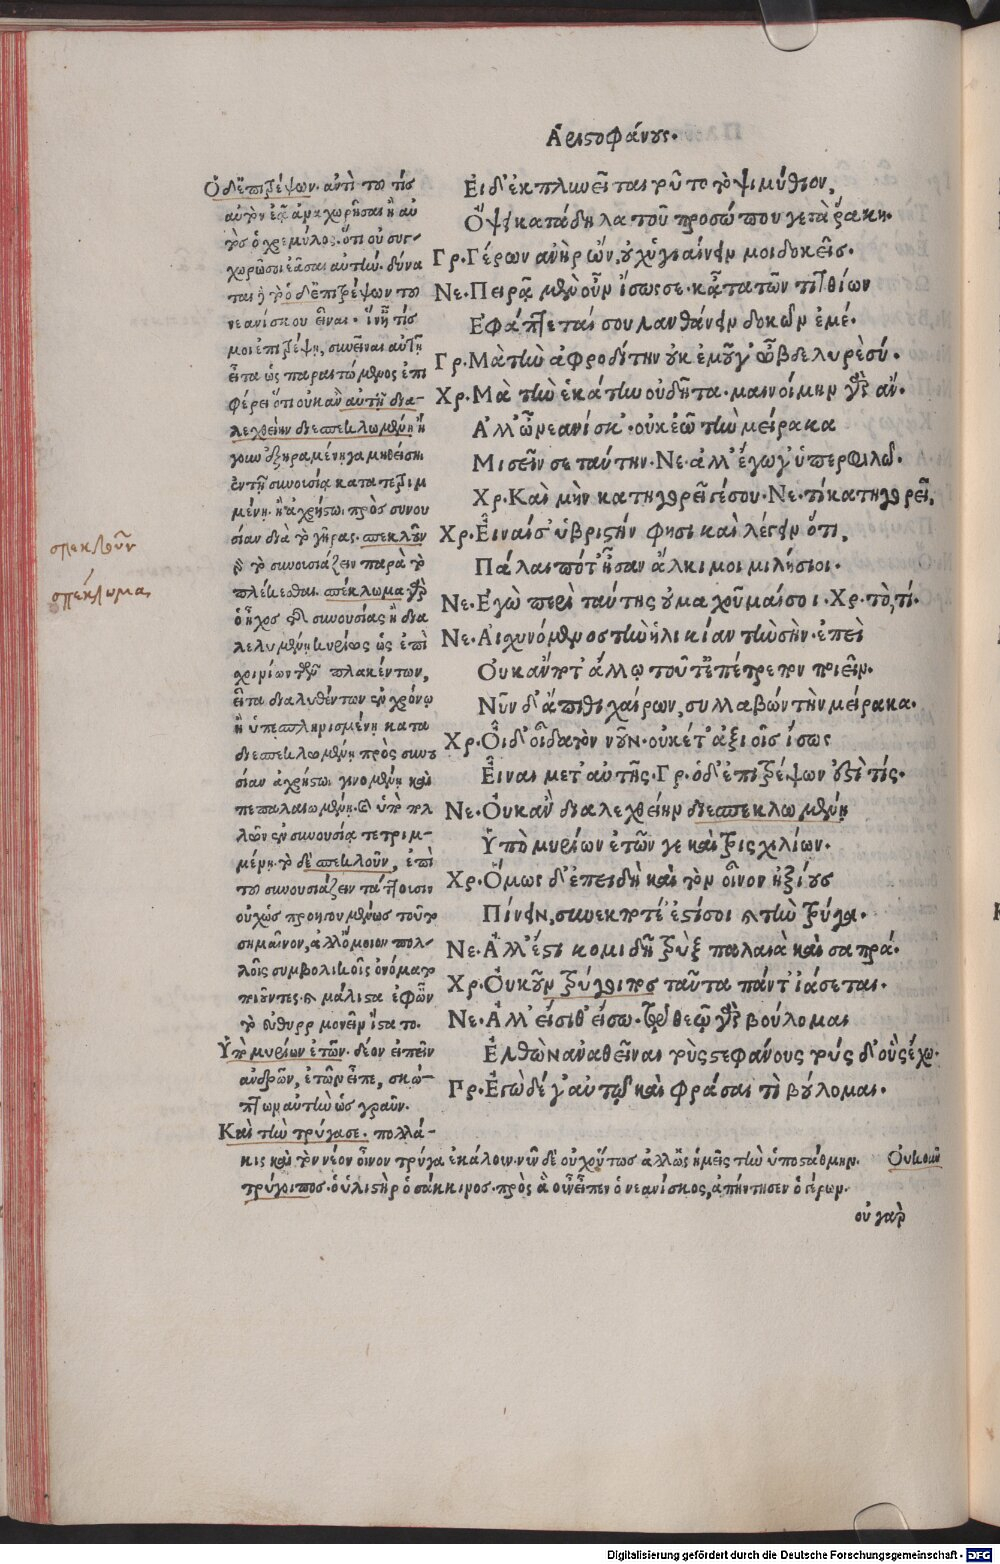 Ἀριστοφάνους.
Ὁ δ' ἐπιτρέψων. ἀντὶ τοῦ τίς
αὐτὸν ἐᾷ ἀναχωρῆσαι ἢ αὐ
τὸς ὁ χρεμύλος. ὅτι οὐ συγ-
χωρῶσοι ἐᾶσαι αὐτήν. δύνα
ται ἢ τὸ ὁ δ' ἐπιτρέψων τοῦ
νεανίσκου εἶναι. τίς
μοι ἐπιτρέψῃ, συνεῖναι αὐτῇ
εἶτα ὡς παραιτώμενος ἐπι
φέρει ὅτι οὐκ ἂν αὐτῇ δια-
λεχθείην διεσπεκλωμένῃ ἢ
γουν
ἐν τῇ συνουσίᾳ κατατετριμ
μένῃ. ἢ ἀχρήστῳ πρὸς συνου
σίαν διὰ τὸ γῆρας. σπεκλοῦν
τὸ συνουσιάζειν παρὰ τὸ
πλέκεσθαι. σπέκλωμα γὰρ
ὁ ἦχος τῆς συνουσίας ἢ δια
λελυμένη κυρίως ὡς ἐπὶ
τῶν πλακέντων,
εἶτα διαλυθέντων ἐν χρόνῳ
κατα
διεσπεκλωμένη πρὸς συνου
σίαν ἀχρήστῳ γινομένῃ καὶ
πεπαλαιωμένῃ. ἢ ὑπὸ πολ
λῶν ἐν συνουσίᾳ τετριμ-
μένῃ. τὸ δὲ σπεκλοῦν, ἐπὶ
τοῦ συνουσιάζειν τάττουσιν
οὐχ ὡς προηγουμένως τοῦτο
σημαῖνον, ἀλλ' ὅμοιον πολ-
λοῖς συμβολικοῖς ὀνόματα
ποιοῦντες. μάλιστα ἐφ' ὧν
τὸ εὐθυρρημονεῖν
Ὑπὸ μυρίων ἐτῶν. δέον εἰπεῖν
ἀνδρῶν, ἐτῶν εἶπε, σκώ-
πτων αὐτὴν ὡς γραῦν.
Καὶ τὴν τρύγα σε. πολλά-
κις καὶ τὸν νέον οἶνον τρύγα ἐκάλουν. νῦν δὲ οὐχ οὕτως ἀλλ' ὡς ἡμεῖς τὴν ὑποστάθμην. Οὐκοῦν
τρύγοιπος. ὁ ὑλιστὴρ ὁ σάκκινος. πρὸς ἃ οὖν εἶπεν ὁ νεανίσκος, ἀπήντησεν ὁ γέρων.
σπεκλοῦν
σπέκλωμα
Εἰ δ' ἐκπλυνεῖται τοῦτο τὸ ψιμύθιον,
Ὄψει κατάδηλα τοῦ προσώπου γε τὰ ῥάκη.
Γρ. Γέρων ἀνὴρ ὤν, οὐχ ὑγιαίνειν μοι δοκεῖς.
Νε. Πειρᾷ μὲν οὖν ἴσως σε. κᾆτα τῶν τιτθίων
Ἐφάπτεταί σου λανθάνειν δοκῶν ἐμέ.
Γρ. Μὰ τὴν ἀφροδίτην οὐκ ἐμοῦ γ' ὦ βδελυρὲ σύ.
Χρ. Μὰ τὴν ἑκάτην οὐδῆτα. μαινοίμην γὰρ ἄν.
Ἀλλ' ὦ νεανίσκ'. οὐκ ἐῶ τὴν μείρακα
Μισεῖν σε ταύτην. Νε. ἀλλ' ἔγωγ' ὑπερφιλῶ.
Χρ. Καὶ μὴν κατηγορεῖ γέ σου. Νε. τί κατηγορεῖ,
Χρ. Εἶναί σ' ὑβριστήν φησι καὶ λέγειν ὅτι,
Πάλαι πότ' ἦσαν ἄλκιμοι μιλήσιοι.
Νε. Ἐγὼ περὶ ταύτης οὐ μαχοῦμαί σοι. Χρ. τὸ, τί.
Νε. Αἰσχυνόμενος τὴν ἡλικίαν τὴν σὴν. ἐπεὶ
Οὐκ ἄν ποτ' ἄλλῳ τοῦτ' ἐπέτρεπον ποιεῖν.
Νῦν δ' ἄπιθι χαίρων, συλλαβών τὴν μείρακα.
Χρ. Οἶδ' οἶδα τὸν νοῦν. οὐκέτ' ἀξιοῖς ἴσως
Εἶναι μετ' αὐτῆς. Γρ. ὁ δ' ἐπιτρέψων ἐστὶ τίς.
Νε. Οὐκ ἂν διαλεχθείην διεσπεκλωμένῃ
Ὑπὸ μυρίων ἐτῶν γε καὶ τρισχιλίων.
Χρ. Ὅμως δ' ἐπειδὴ καὶ τὸν οἶνον ἠξίους
Πίνειν, συνεκποτέ' ἐστί σοι καὶ τὴν τρύγα.
Νε. Ἀλλ' ἔστι κομιδῇ τρὺξ παλαιὰ καὶ σαπρά.
Χρ. Οὐκοῦν τρύγοιπος ταῦτα πάντ' ἰάσεται.
Νε. Ἀλλ' εἴσιθ' εἴσω. τῷ θεῷ γὰρ βούλομαι
Ἐλθὼν ἀναθεῖναι τοὺς στεφάνους τούς δ' οὓς ἔχω.
Γρ. Ἐγὼ δέ γ' αὐτῷ καὶ φράσαι τὶ βούλομαι.
οὐ γὰρ
Digitalisierung gefördert durch die Deutsche Forschungsgemeinschaft - DFG